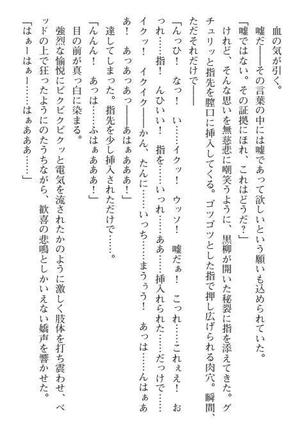 血の気が引く。
嘘だ――その言葉の中には嘘であって欲しいという願いも込められていた。
「嘘ではない。その証拠にほれ、これはどうだ？」
けれど、そんな思いを無慈悲に嘲笑うように、黒柳が開いた秘裂に指を添えてきた。グ
チュリッと指先を膣口に挿入してくる。ゴツゴツとした指で押し広げられる肉穴。瞬間、
ただそれだけで――
「んっひ！　なっ！　い……イクッ！　ウッソ！　嘘だぁ！　こっれ……これぇえ！　お
っれ……指！　んひいい！　指を……いっれ……ああ……挿入れられた……だっけで……
イクッ！　イクイクイクーかん、たんに……いっち……まうぅう！　あっは……んはぁぁ
あ！　あっあっあっ――あはぁああ！」
達してしまった。指先を少し挿入されただけで……。
「んんん！　あっは……ふはぁああぁ！」
目の前が真っ白に染まる。
強烈な愉悦にビクビクビクッと電気を流されたかのように激しく肢体を打ち震わせ、ベ
ッドの上で狂ったようにのたうちながら、歓喜の悲鳴としかいえない嬌声を響かせた。
「はぁーはぁー……はぁあああ……」